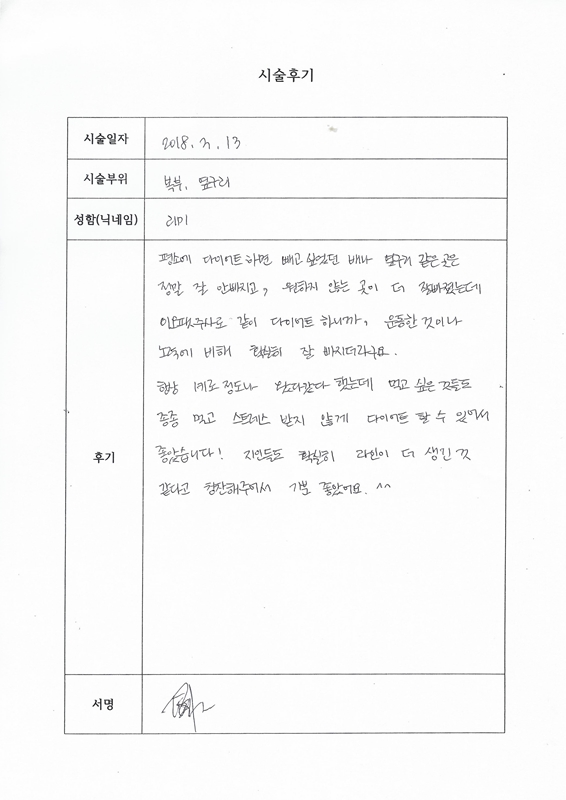 시술후기
시술일자 2018. 3. 13
시술부위 복부, 옆구리
성함(닉네임) 리미
후기
평소에 다이어트 하면 빼고 싶었던 배나 옆구리 같은 곳은
정말 잘 안빠지고, 원하지 않는 곳이 더 잘빠졌는데
주사로 같이 다이어트 하니까, 운동한 것이나
노력에 비해 확실히 잘 빠지더라구요.
항상 1키로 정도나 왔다갔다 했는데 먹고 싶은 것들도
종종 먹고 스트레스 받지 않게 다이어트 할 수 있어서
좋았습니다! 지인들도 확실히 라인이 더 생긴 것
같다고 칭찬해주어서 기분 좋았어요. ^^
서명